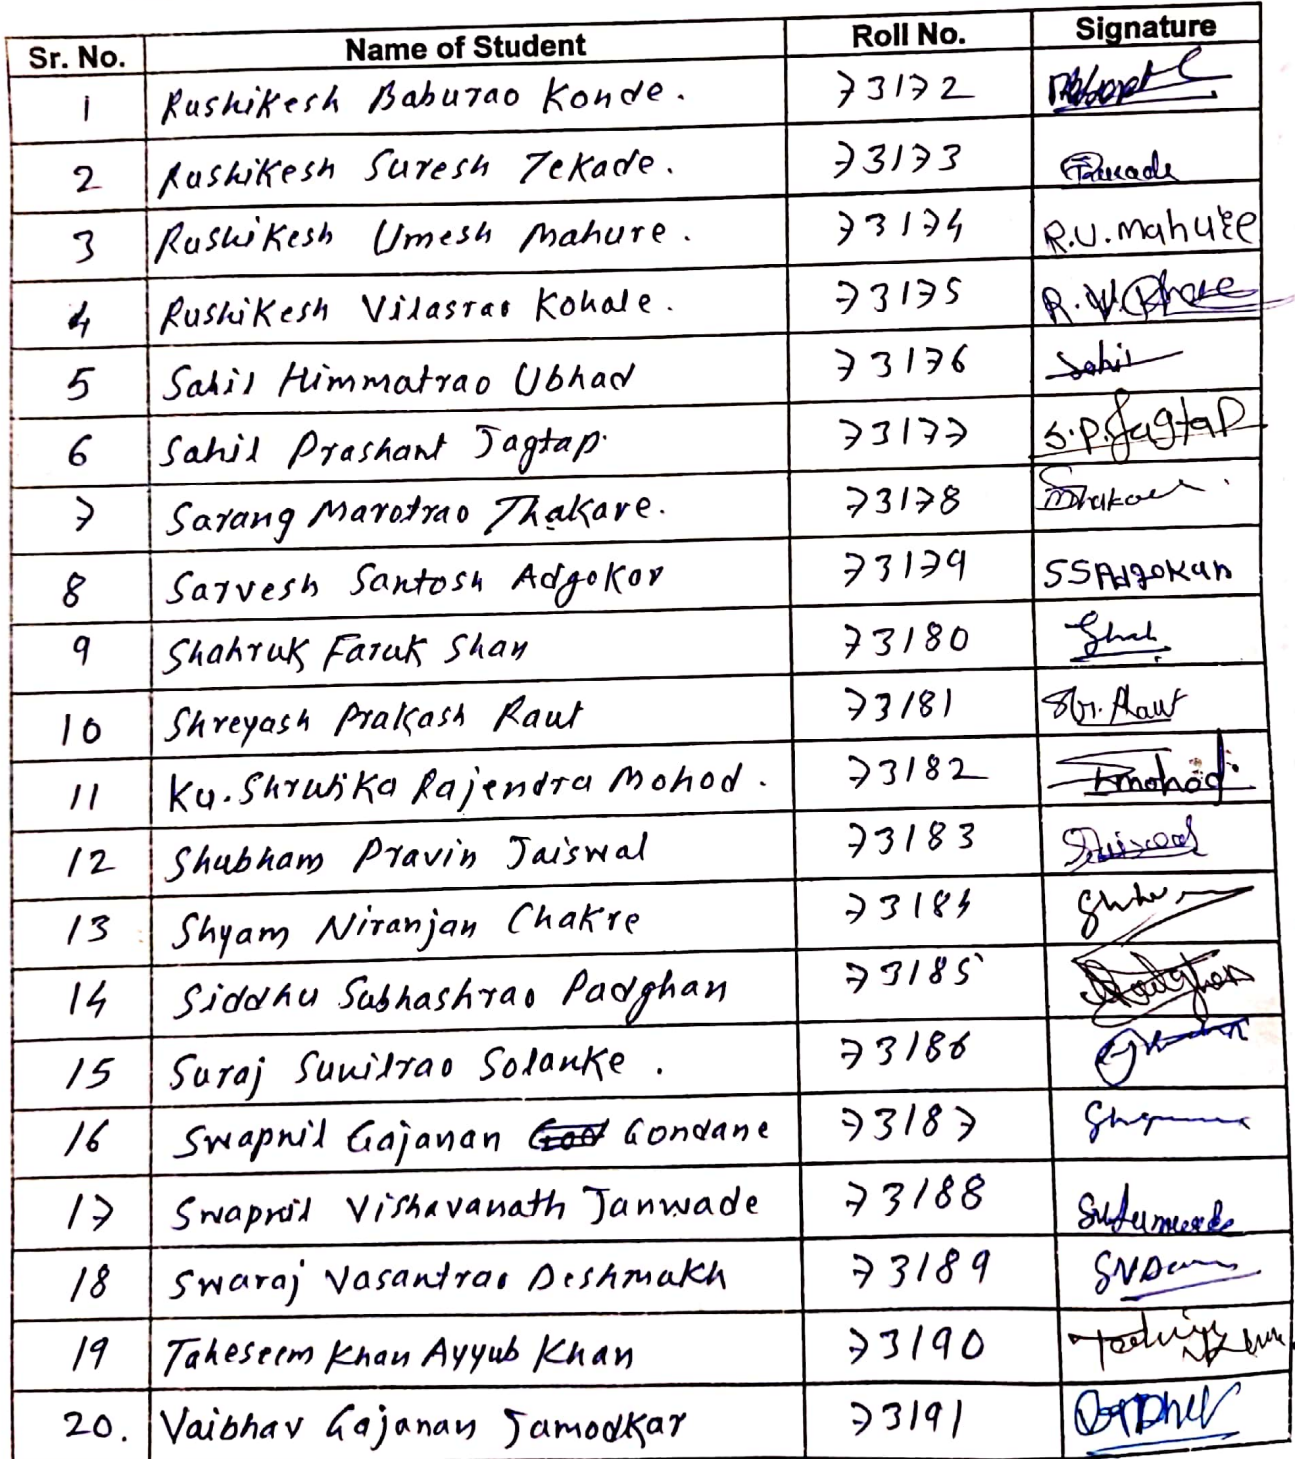 Sr. No. Name of Student Roll No. Signature
1 Rushikesh Baburao Konde. 73172
2 Rushikesh Suresh Tekade. 73173
3 Rushikesh Umesh Mahure. 73174 R.U. Mahure
4 Rushikesh Vilasrao Kohale. 73175
5 Sahil Himmatrao Ubhad 73176 Sahil
6 Sahil Prashant Jagtap. 73177 S.P. Jagtap
7 Sarang Marotrao Thakare. 73178
8 Sarvesh Santosh Adgokar 73179 SSAdgokar
9 Shahruk Faruk Shah 73180 Shah
10 Shreyash Prakash Raut 73181 Raut
11 Ku. Shrutika Rajendra Mohod. 73182
12 Shubham Pravin Jaiswal 73183
13 Shyam Niranjan Chakre 73184
14 Siddhu Subhashrao Padghan 73185
15 Suraj Sunilrao Solanke. 73186
16 Swapnil Gajanan Gondane 73187
17 Swapnil Vishavanath Janwade 73188
18 Swaraj Vasantrao Deshmukh 73189
19 Taheseem Khan Ayyub Khan 73190
20. Vaibhav Gajanan Jamodkar 73191